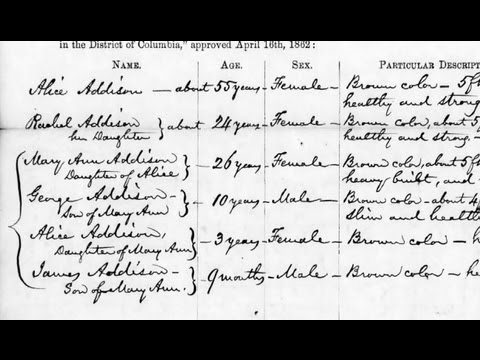 in the District of Columbia," approved April 16th, 1862:
NAME. AGE. SEX. PARTICULAR DESCRIPT
Alice Addison — about 55 years - Female - Brown color - 5f
healthy and strong
Rachel Addison } about 24 years - Female - Brown color, about 5
her Daughter healthy and strong. -
Mary Ann Addison } - 26 years - Female - Brown color, about 5 f
Daughter of Alice heavy built, and -
George Addison - } - 10 years - Male - Brown color - about 4
Son of Mary Ann slim and health
Alice Addison, } - 3 years - Female - Brown color - h
Daughter of Mary Ann
James Addison - } 9 months - Male - Brown color - he
Son of Mary Ann.